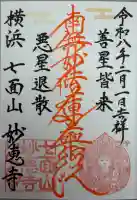 令和八年二月一日吉祥
善星皆来
南無妙法蓮華経
悪星退散
横浜 七面山 妙恵寺